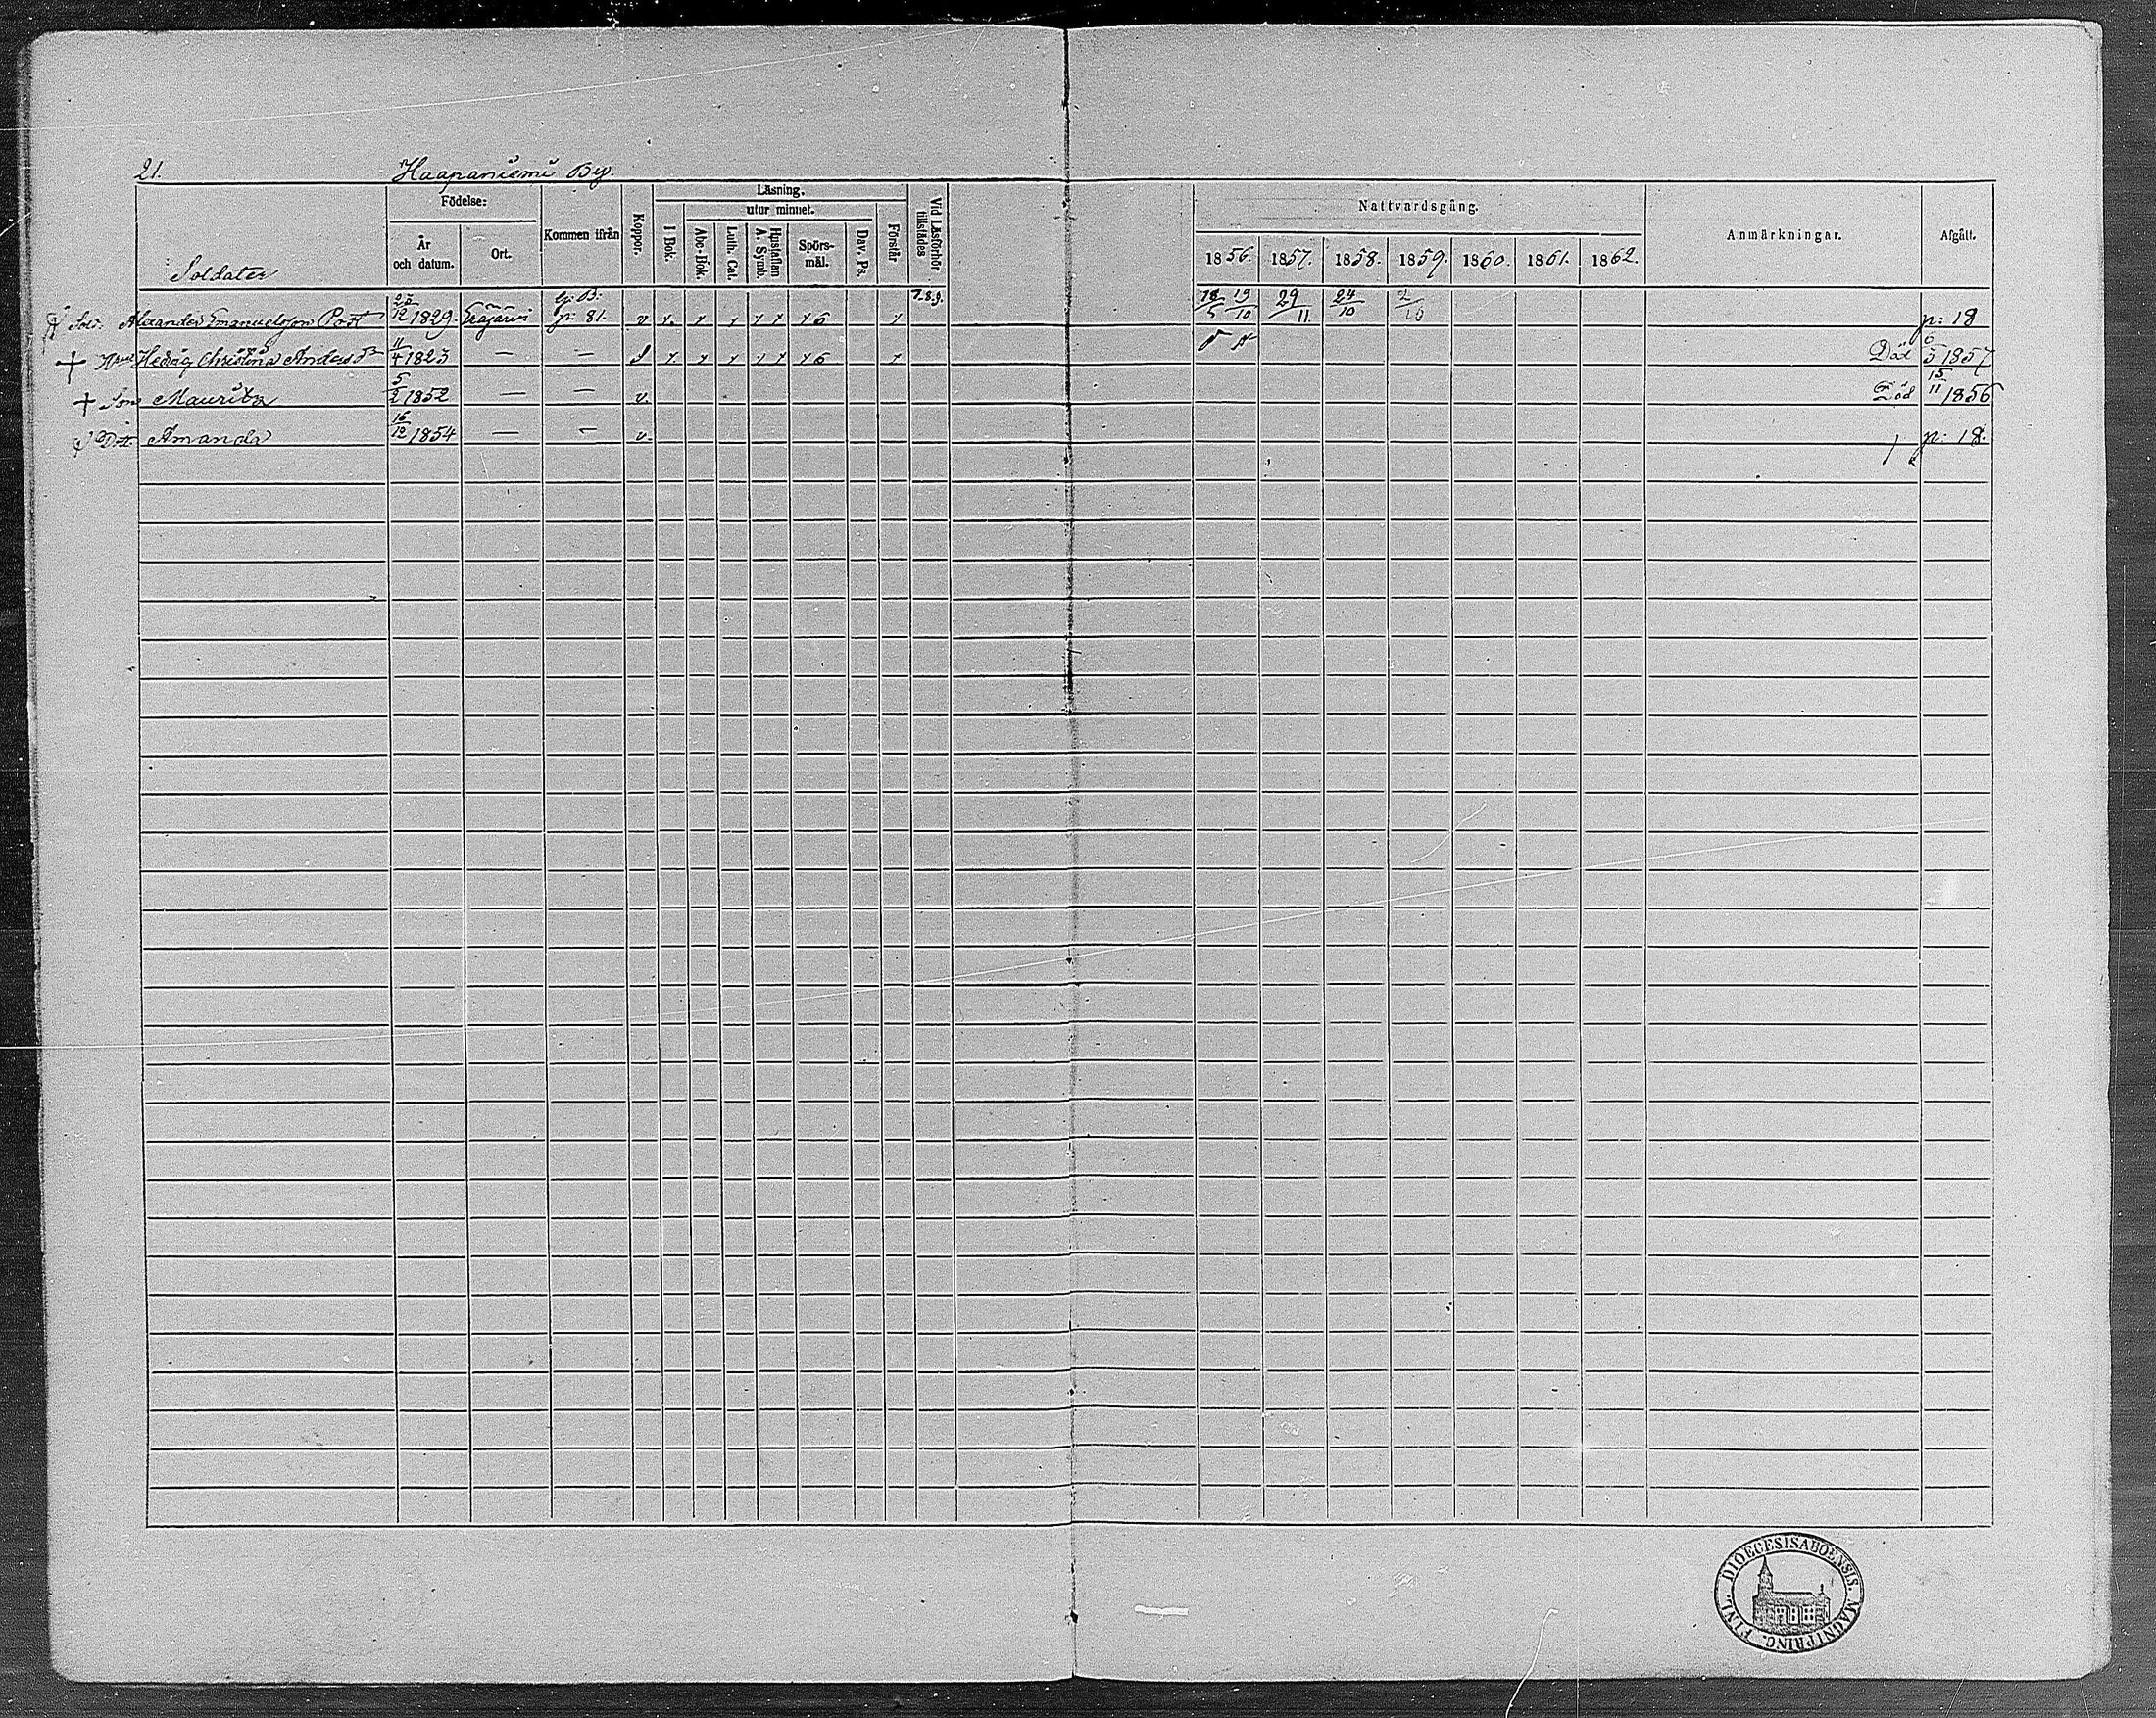 21. Haapaniemi By.
Soldater
Födelse:
År och datum.
Ort.
Kommen ifrån
Koppor.
Läsning.
utur minnet.
I Bok.
Abc-Bok.
Luth. Cat.
Hustaflan A. Symb.
Spörsmål.
Dav. Ps.
Förstår
Vid Läsförhör tillstädes
Nattvardsgång.
1856. 1857. 1858. 1859. 1860. 1861. 1862.
Anmärkningar.
Afgått.
7.8.9.
Sold. Alexander Emanuelsson Post 25/12 1829. Eräjärvi p: 81. v 18/5 19/10 29/11 24/10 2/10 p: 18
Hedvig Christina Anders Dr 11/4 1823 — — Död 6/5 1857
Son Mauritz 5/2 1852 — — v. Död 15/11 1856
Dott. Amanda 16/12 1854 — — v. p: 18.
DIOECESIS ABOENSIS. MAGNI PRINC. FINL.